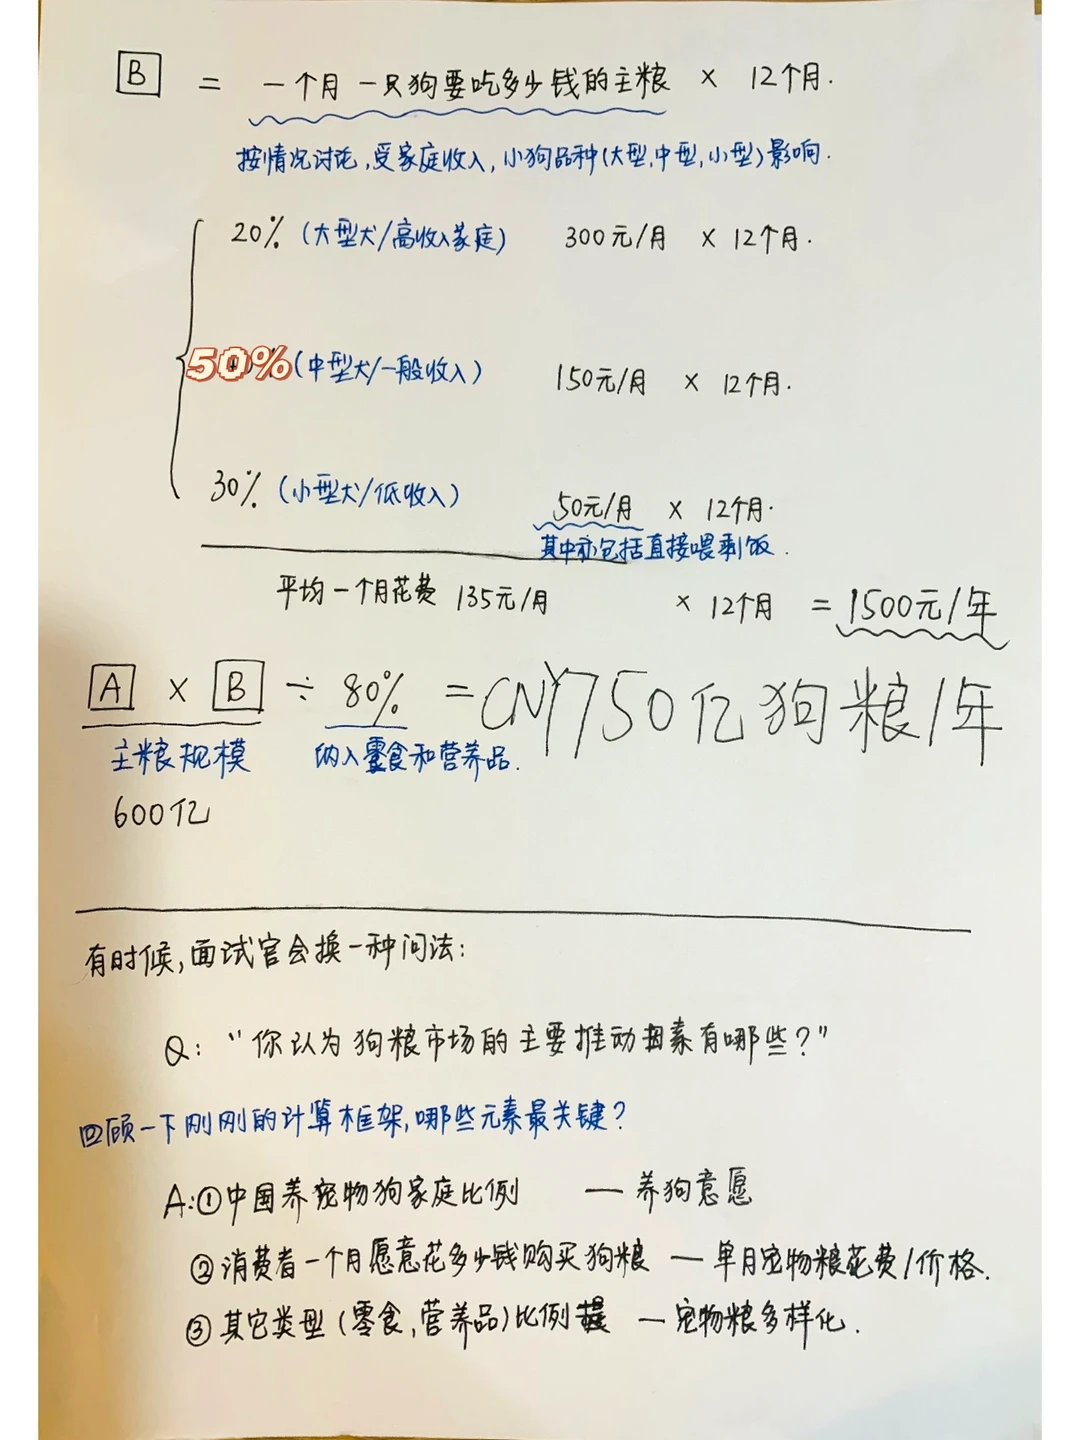 B = 一个月一只狗要吃多少钱的主粮 × 12个月.
按情况讨论,受家庭收入,小狗品种(大型,中型,小型)影响.
20% (大型犬/高收入家庭) 300元/月 × 12个月.
50% (中型犬/一般收入) 150元/月 × 12个月.
30% (小型犬/低收入) 50元/月 × 12个月.
其中亦包括直接喂剩饭.
平均一个月花费 135元/月 × 12个月 = 1500元/年
A × B ÷ 80% = CNY750亿狗粮/年
主粮规模 纳入零食和营养品.
600亿
有时候,面试官会换一种问法:
Q: “你认为狗粮市场的主要推动因素有哪些?”
回顾一下刚刚的计算框架,哪些元素最关键?
A:①中国养宠物狗家庭比例 — 养狗意愿
②消费者一个月愿意花多少钱购买狗粮 — 单月宠物粮花费/价格.
③其它类型(零食,营养品)比例 — 宠物粮多样化.